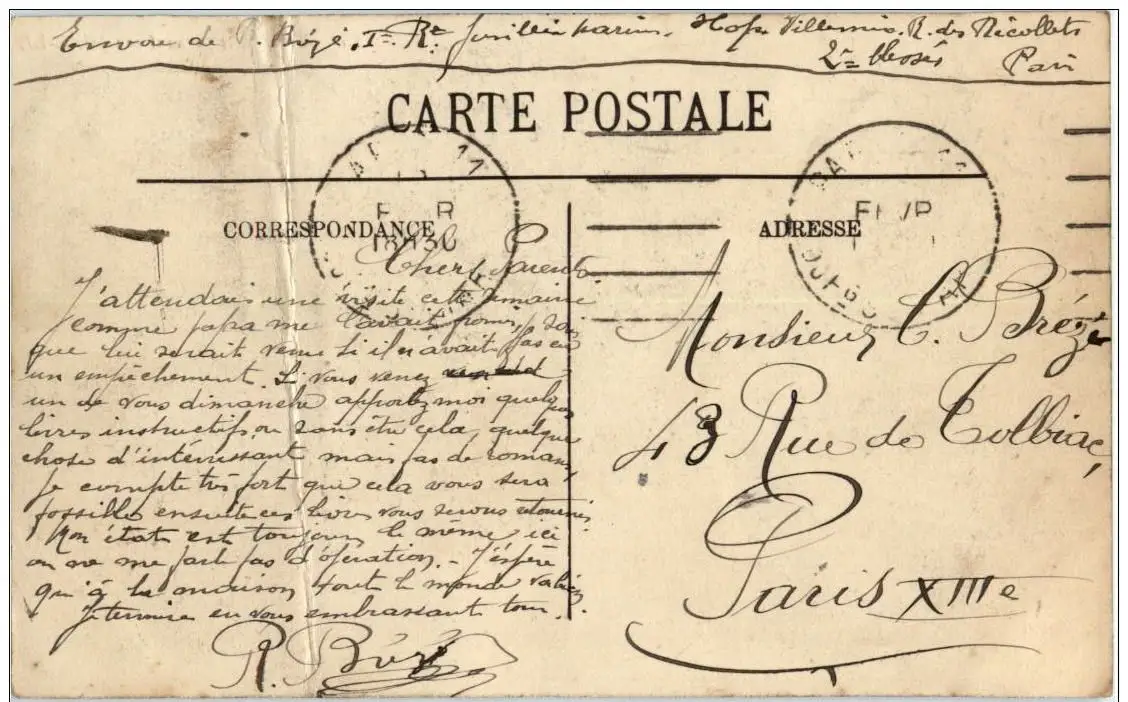 Envoi de R. Brézé. 1er Rt fusillier marins. Hop. Villemin. R. des Récollets
2e blessés Paris
CARTE POSTALE
CORRESPONDANCE
ADRESSE
FEVR
Chers Parents
J'attendais une visite cette semaine
comme papa me l'avait promis, sois
que lui serait venu si il n'avait pas eu
un empêchement. Si vous venez
un de vous dimanche apportez moi quelques
livres instructifs ou sans être cela, quelque
chose d'intérrissant mais pas de roman,
je compte très fort que cela vous sera
possible ensuite ces livres vous serons retournés
Mon états est toujours le même ici
on ne me parle pas d'opération. - J'éspère
qu'à la maison tout le monde va bien
Je termine en vous embrassant tous.
R. Brézé
Monsieur C. Brézé
43 Rue de Tolbiac,
Paris XIIIe